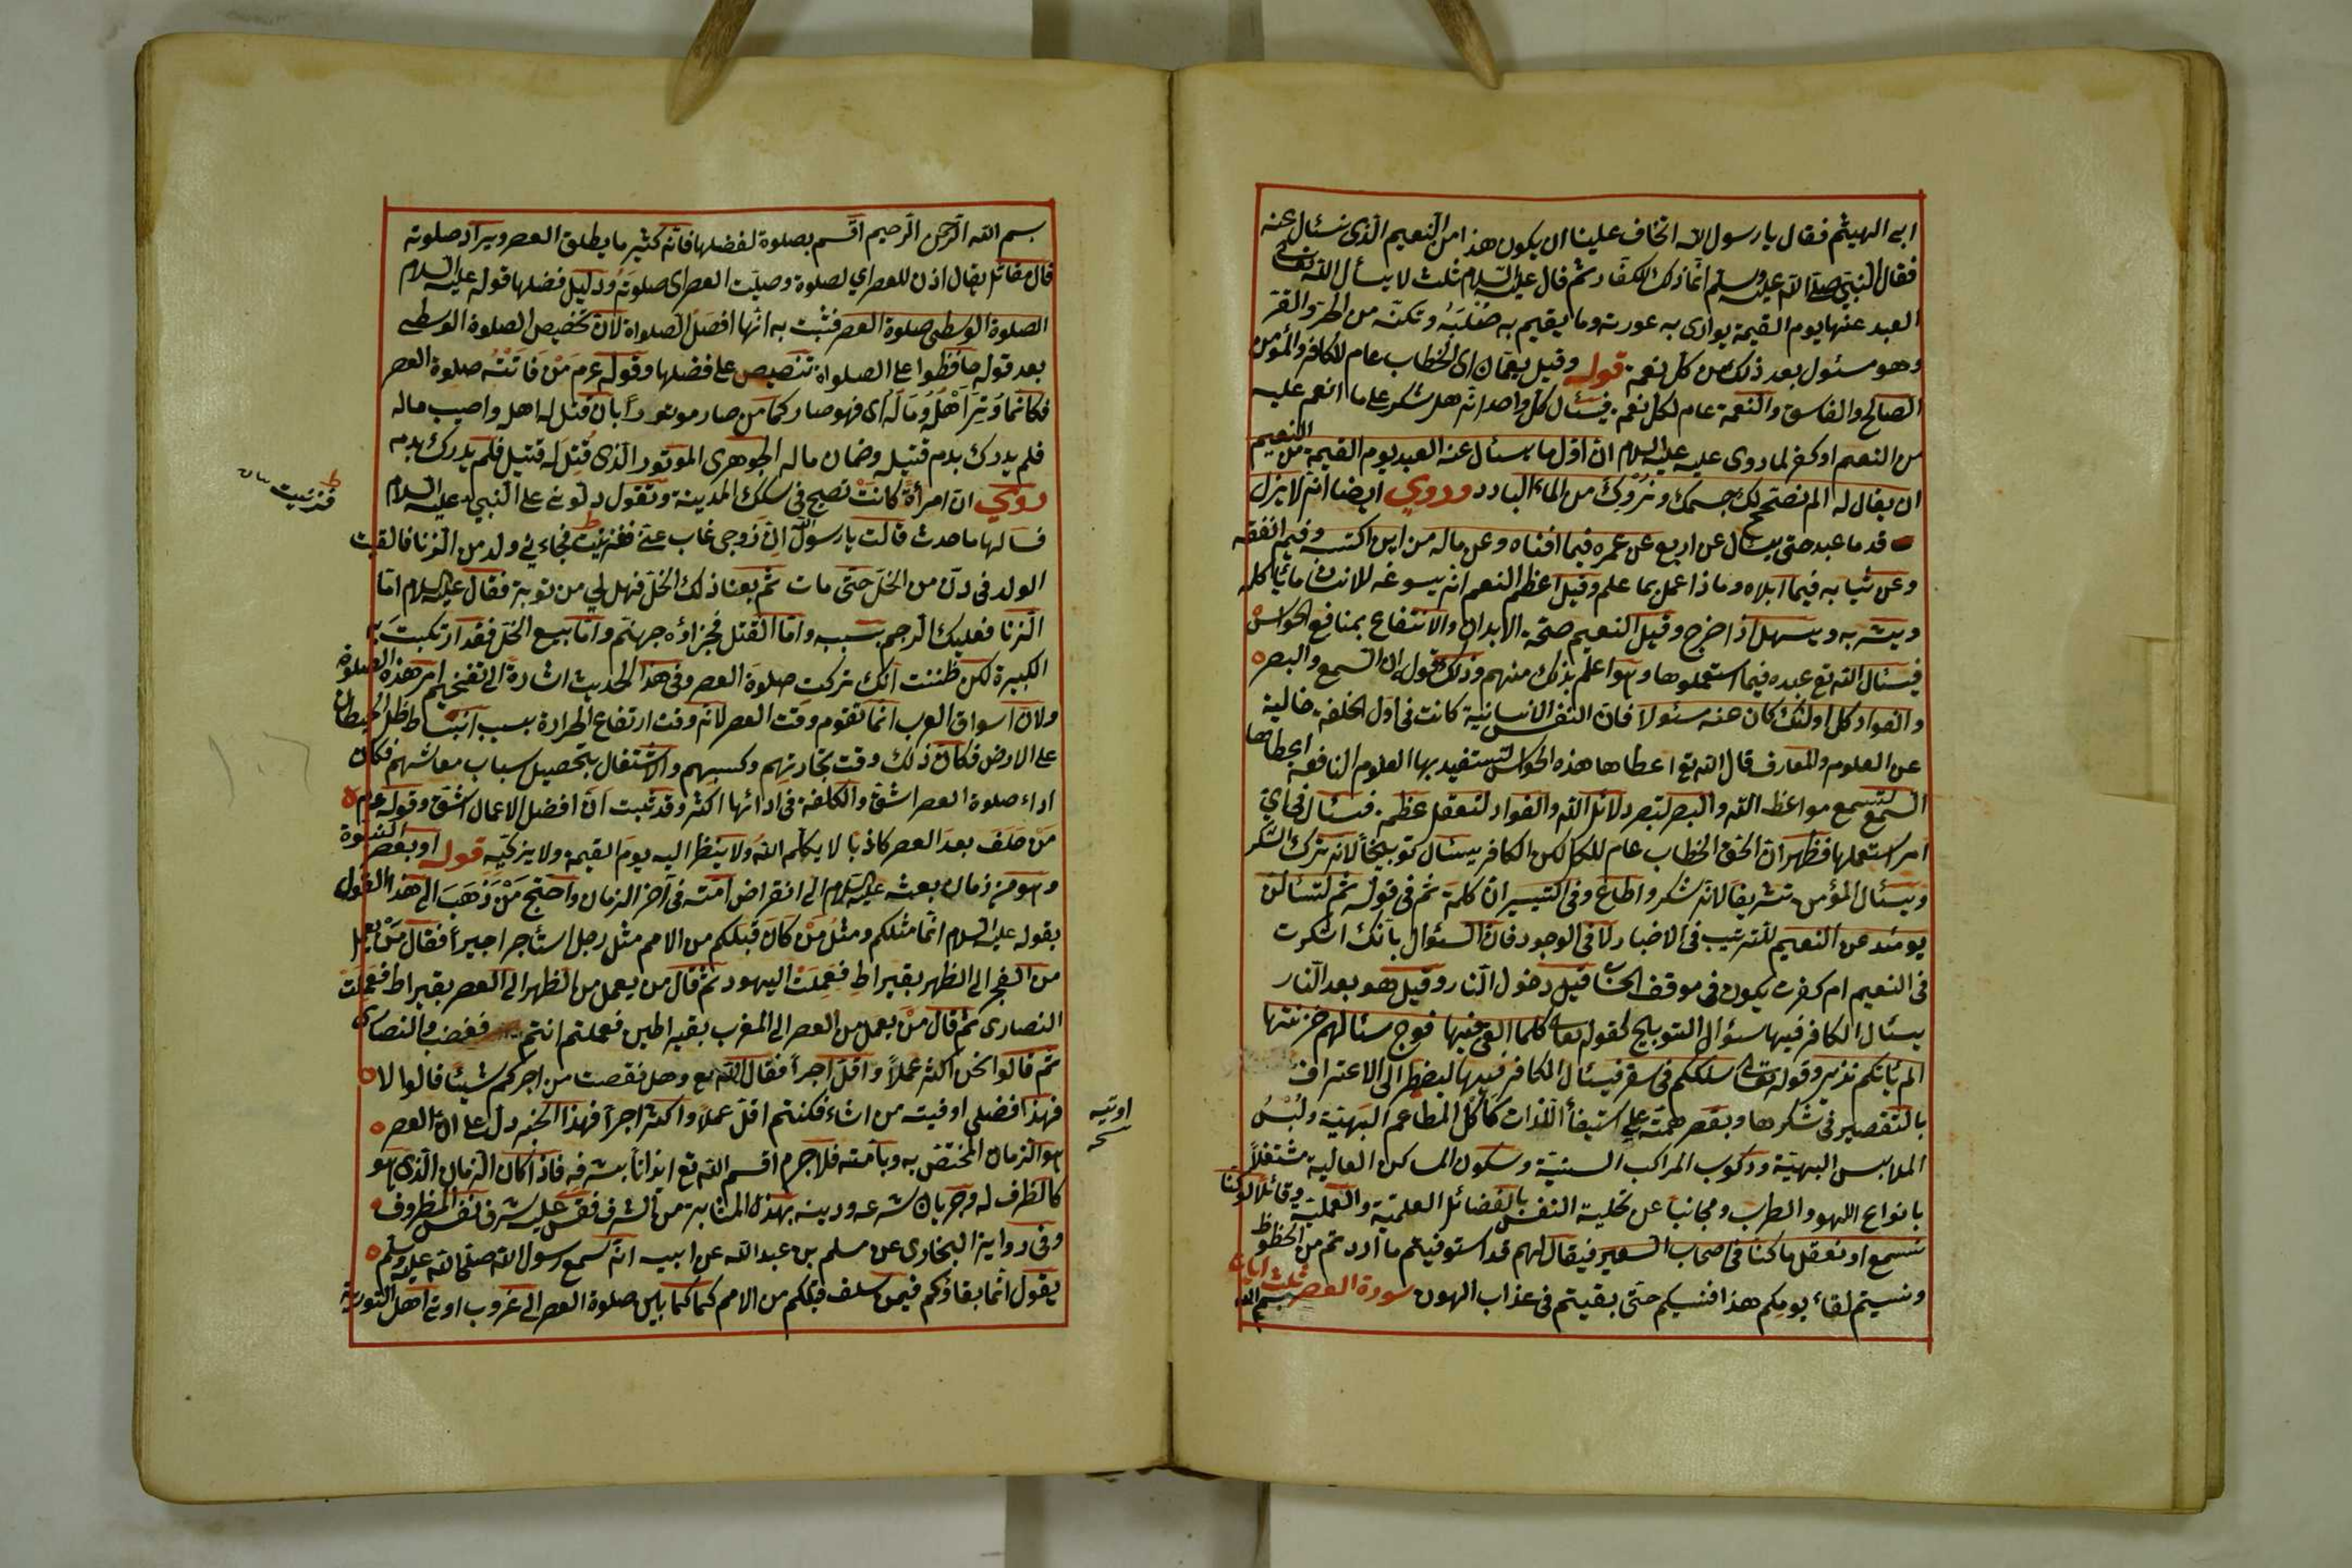 ابى الهيثم فقال يا رسول الله اتخاف علينا ان يكون هذا من النعيم الذى نسئل عنه
فقال النبى صلى الله عليه وسلم انما ذلك للكفار ثم قال عليه السلام ثلث لا يسأل الله تعالى
العبد عنها يوم القيمة يوارى به عورته وما يقيم به صلبه وتكنه من الحر والقر
وهو مسئول بعد ذلك من كل نعمة قوله وقيل يعمان اى الخطاب عام للكافر والمؤمن
الصالح والفاسق والنعمة عام لكل نعمة فيسئال كل واحد انه هل شكر على ما انعم عليه
من النعيم او كفر لما روى عليه عليه السلام ان اول ما يسئال عنه العبد يوم القيمة من النعيم
ان يقال له الم نصحح لك جسمك ونروك من الماء البارد وروى ايضا انه لا يزل
قدما عبد حتى يسئال عن اربع عن عمره فيما افناه وعن ماله من اين اكتسبه وفيم انفقه
وعن شبابه فيما ابلاه وماذا عمل بما علم وقيل اعظم النعم انه يسوغه للانسان ما ياكله
ويشربه ويسهل اذا خرج وقيل النعيم صحة الابدان والانتفاع بمنافع الحواس
فيسئال الله تع عبده فيما استعملوها وهو اعلم بذلك منهم وذلك قوله ان السمع والبصر
والفواد كل اولئك كان عنه مسئولا فان النفس الانسانية كانت فى اول الخلقة خالية
عن العلوم والمعارف قال الله تع اعطاها هذه الحواس لتستفيد بها العلوم النافعة اعطاها
السمع لتسمع مواعظ الله والبصر لتبصر دلائل الله والفواد لتعقل عظمه فيسئال فى اى
امر استعملها فظهر ان الحق الخطاب عام للكل لكن الكافر يسئال توبيخا لانه ترك الشكر
ويسئال المؤمن تشريفا لانه شكر واطاع وفى التيسير ان كلمة ثم فى قوله ثم لتسئالن
يومئذ عن النعيم للترتيب فى الاخبار لا فى الوجود فان السئوال بانك اشكرت
فى النعيم ام كفرت يكون فى موقف الحساب قبل دخول النار وقيل هو بعد النار
يسئال الكافر فيها سئوال التوبيخ لقوله تعالى كلما القى فيها فوج سئالهم خزنتها
الم ياتكم نذير وقوله تعالى ما سلككم فى سقر فيسئال الكافر فيها ليضطر الى الاعتراف
بالتقصير فى شكرها وبقصر همته على استيفاء اللذات كاكل المطاعم البهية ولبس
الملابس البهية وركوب المراكب السنية وسكون المساكن العالية مشتغلا
بانواع اللهو والطرب ومجانبا عن تحلية النفس بالفضائل العلمية والعملية وقائلا لو كنا
نسمع او نعقل ما كنا فى اصحاب السعير فيقال لهم قد استوفيتم ما اردتم من الحظوظ
ونسيتم لقاء يومكم هذا فننسيكم حتى بقيتم فى عذاب الهون سورة العصر ثلث ايات
بسم الله
بسم الله الرحمن الرحيم اقسم بصلوة لفضلها فانه كثير ما يطلق العصر ويراد صلوته
قال مقاتل يقال اذن للعصر اي لصلوة وصليت العصر اى صلوته ودليل فضلها قوله عليه السلام
الصلوة الوسطى صلوة العصر فثبت به انها افضل الصلواة لان تخصيص الصلوة الوسطى
بعد قوله حافظوا على الصلواة تنصيص على فضلها وقوله عم من فاتته صلوة العصر
فكانما وتر اهله وماله اى فهو صار كمن صار موتورا بان قتل له اهل واصيب ماله
فلم يدرك بدم قتيله وضمان ماله الجوهرى الموتور الذى قتل له قتيل فلم يدرك بدمه
روي ان امرأة كانت تصيح فى سكك المدينة وتقول دلونى على النبي عليه السلام
فسالها ما حدث قالت يا رسول الله ان زوجى غاب عنى فزنيت فجاءنى ولد من الزنا فالقيت
الولد فى دن من الخل حتى مات ثم بعنا ذلك الخل فهل لي من توبة فقال عليه السلام اما
الزنا فعليك الرجم بسببه واما القتل فجزاؤه جهنم واما بيع الخل فقد ارتكبت به
الكبيرة لكن ظننت انك تركت صلوة العصر وفى هذا الحديث اشارة الى تفخيم امر هذه الصلوة
ولان اسواق العرب انما تقوم وقت العصر لانه وقت ارتفاع الحرارة بسبب انبساط ظل الحيطان
على الارض فكان ذلك وقت تجارتهم وكسبهم والاشتغال بتحصيل سباب معاشهم فكان
اداء صلوة العصر اشق والكلفة فى ادائها اكثر وقد ثبت ان افضل الاعمال اشق وقوله عم
من حلف بعد العصر كاذبا لا يكلم الله ولا ينظر اليه يوم القيمة ولا يزكيه قوله او بعصر النبوة
وهو من زمان بعثه عليه السلام الى انقراض امته فى آخر الزمان واحتج من ذهب الى هذا القول
بقوله عليه السلام انما مثلكم ومثل من كان قبلكم من الامم مثل رجل استأجر اجيرا فقال من يعمل
من الفجر الى الظهر بقيراط فعملت اليهود ثم قال من يعمل من الظهر الى العصر بقيراط فعملت
النصارى ثم قال من يعمل من العصر الى المغرب بقيراطين فعملتم انتم فغضب والنصارى
ثم قالوا نحن اكثر عملا واقل اجرا فقال الله تع وهل نقصت من اجركم شيئا قالوا لا
فهذا فضلى اوفيته من اشاء فكنتم اقل عملا واكثر اجرا فهذا الخبر دل على ان العصر
هو الزمان المختص به وبامته فلا جرم اقسم الله تع ايذانا بشرفه فاذا كان الزمان الذى هو
كالظرف له وجريان شرعه ودينه بهذه المثابة من الشرف فقس عليه شرف نفس المظروف
وفى رواية البخارى عن مسلم بن عبد الله عن ابيه انه سمع رسول الله صلى الله عليه وسلم
يقول انما بقاؤكم فيمن سلف قبلكم من الامم كما كما بين صلوة العصر الى غروب اوتى اهل التورية
فزنيت
اوتيه